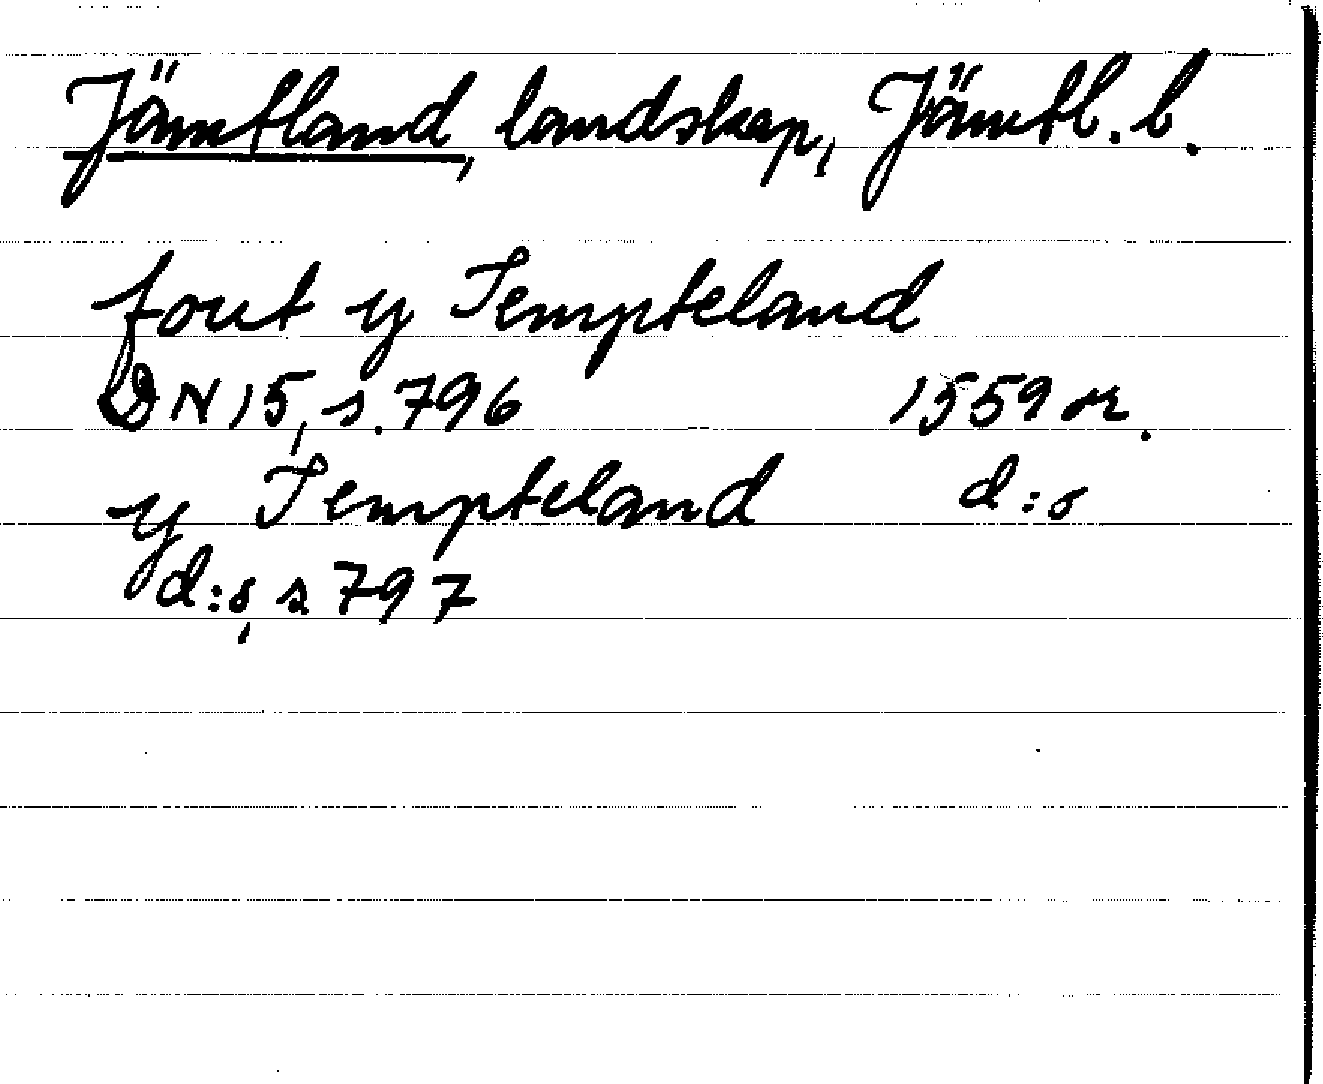 Jämtland, landskap, Jämtl. l.
fout y Jempteland
DN 15, s. 796 1559 or.
y Jempteland d:o
d:o, s 797